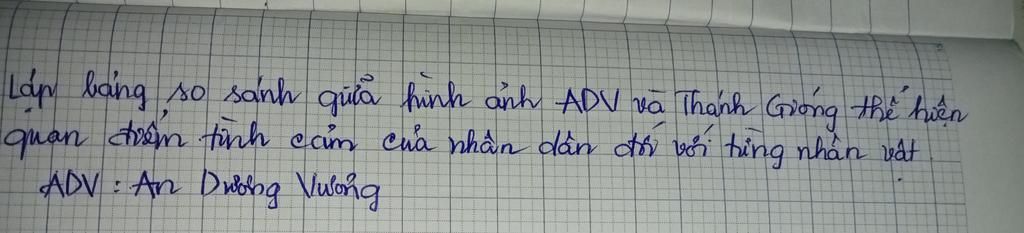 Lập bảng so sánh giữa hình ảnh ADV và Thánh Gióng thể hiện
quan điểm tình cảm của nhân dân đối với từng nhân vật
ADV : An Dương Vương